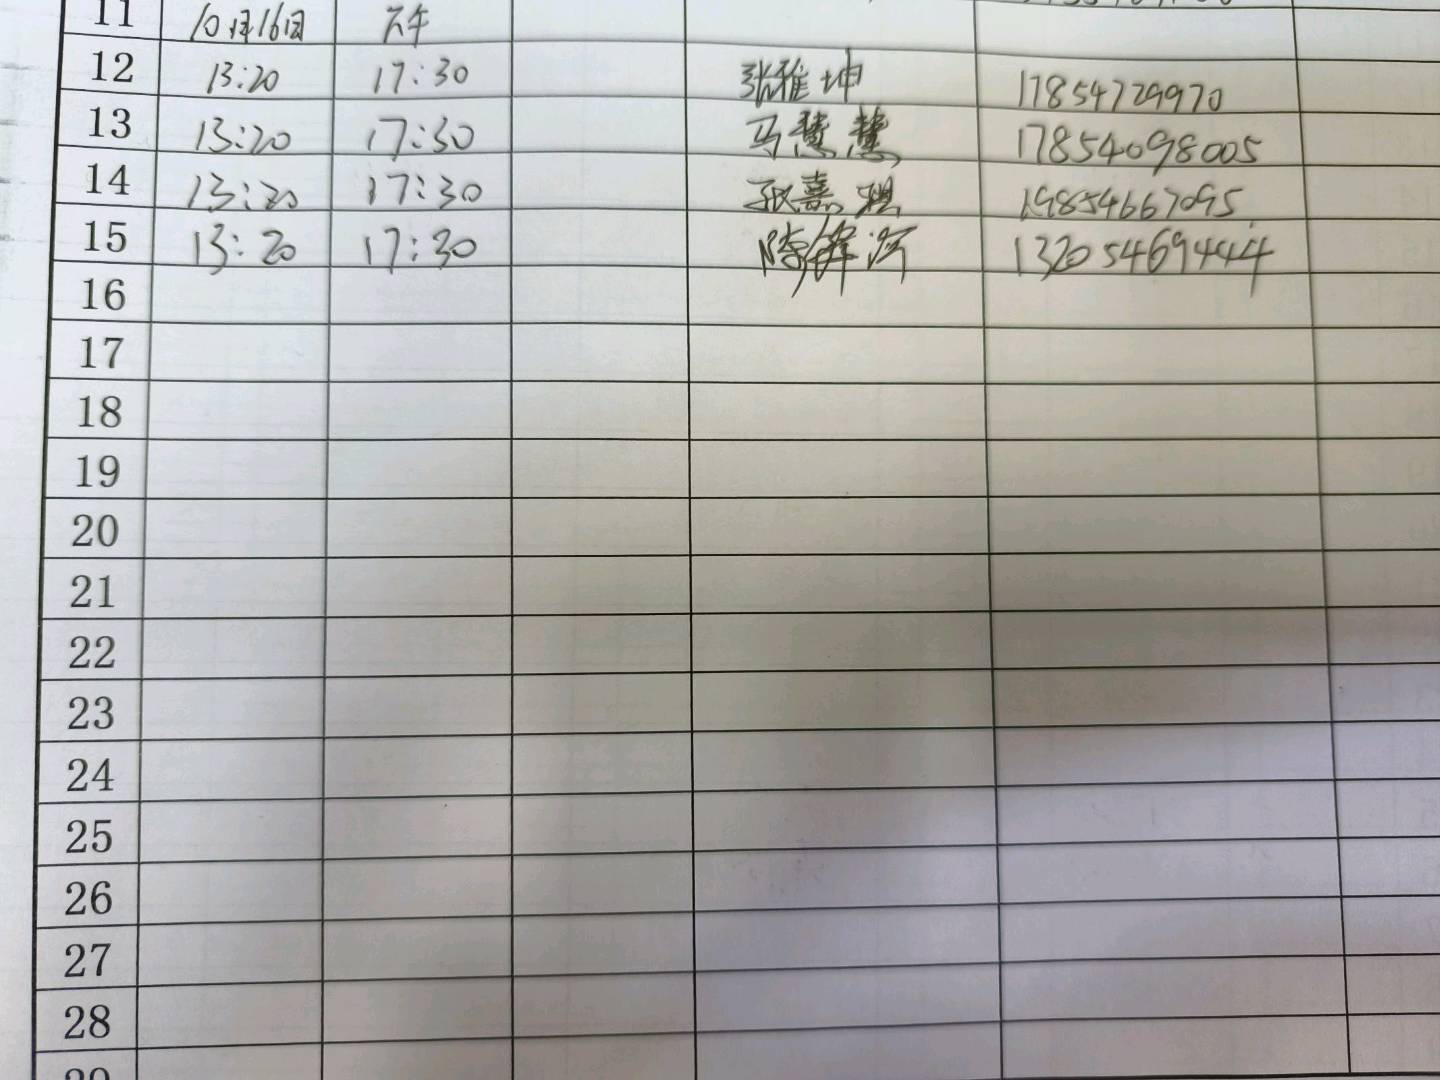 11 10月16日 下午
12 13:20 17:30 张雅坤 17854729970
13 13:20 17:30 马慧慧 17854098005
14 13:20 17:30 张嘉琪 19854667095
15 13:20 17:30 13205469444
16
17
18
19
20
21
22
23
24
25
26
27
28
29